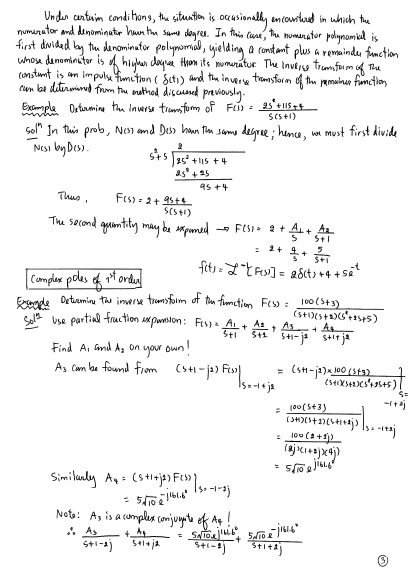 Under certain conditions, the situation is occasionally encountered in which the
numerator and denominator have the same degree. In this case, the numerator polynomial is
first divided by the denominator polynomial, yielding a constant plus a remainder function
whose denominator is of higher degree than its numerator. The inverse transform of the
constant is an impulse function (δ(t)) and the inverse transform of the remainder function
can be determined from the method discussed previously.
Example Determine the inverse transform of F(s) = 2s²+11s+4 / s(s+1)
Solⁿ In this prob, N(s) and D(s) have the same degree; hence, we must first divide
N(s) by D(s).
2
s²+s | 2s²+11s+4
2s²+2s
9s+4
Thus, F(s) = 2 + 9s+4 / s(s+1)
The second quantity may be expanded → F(s) = 2 + A₁/s + A₂/s+1
= 2 + 4/s + 5/s+1
f(t) = ℒ⁻¹[F(s)] = 2δ(t)+4+5e⁻ᵗ
Complex poles of 1st order
Example Determine the inverse transform of the function F(s) = 100(s+3) / (s+1)(s+2)(s²+2s+5)
Solⁿ Use partial fraction expansion: F(s) = A₁/s+1 + A₂/s+2 + A₃/s+1-j2 + A₄/s+1+j2
Find A₁ and A₂ on your own!
A₃ can be found from (s+1-j2) F(s)|s=-1+j2 = (s+1-j2)×100(s+3) / (s+1)(s+2)(s²+2s+5) |s=-1+j2
= 100(s+3) / (s+1)(s+2)(s+1+2j) |s=-1+2j
= 100(2+2j) / (2j)(1+2j)(4j)
= 5√10 e^j161.6°
Similarly A₄ = (s+1+j2) F(s)|s=-1-2j
= 5√10 e^-j161.6°
Note: A₃ is a complex conjugate of A₄!
∴ A₃/s+1-2j + A₄/s+1+j2 = 5√10 e^j161.6°/s+1-2j + 5√10 e^-j161.6°/s+1+2j
③